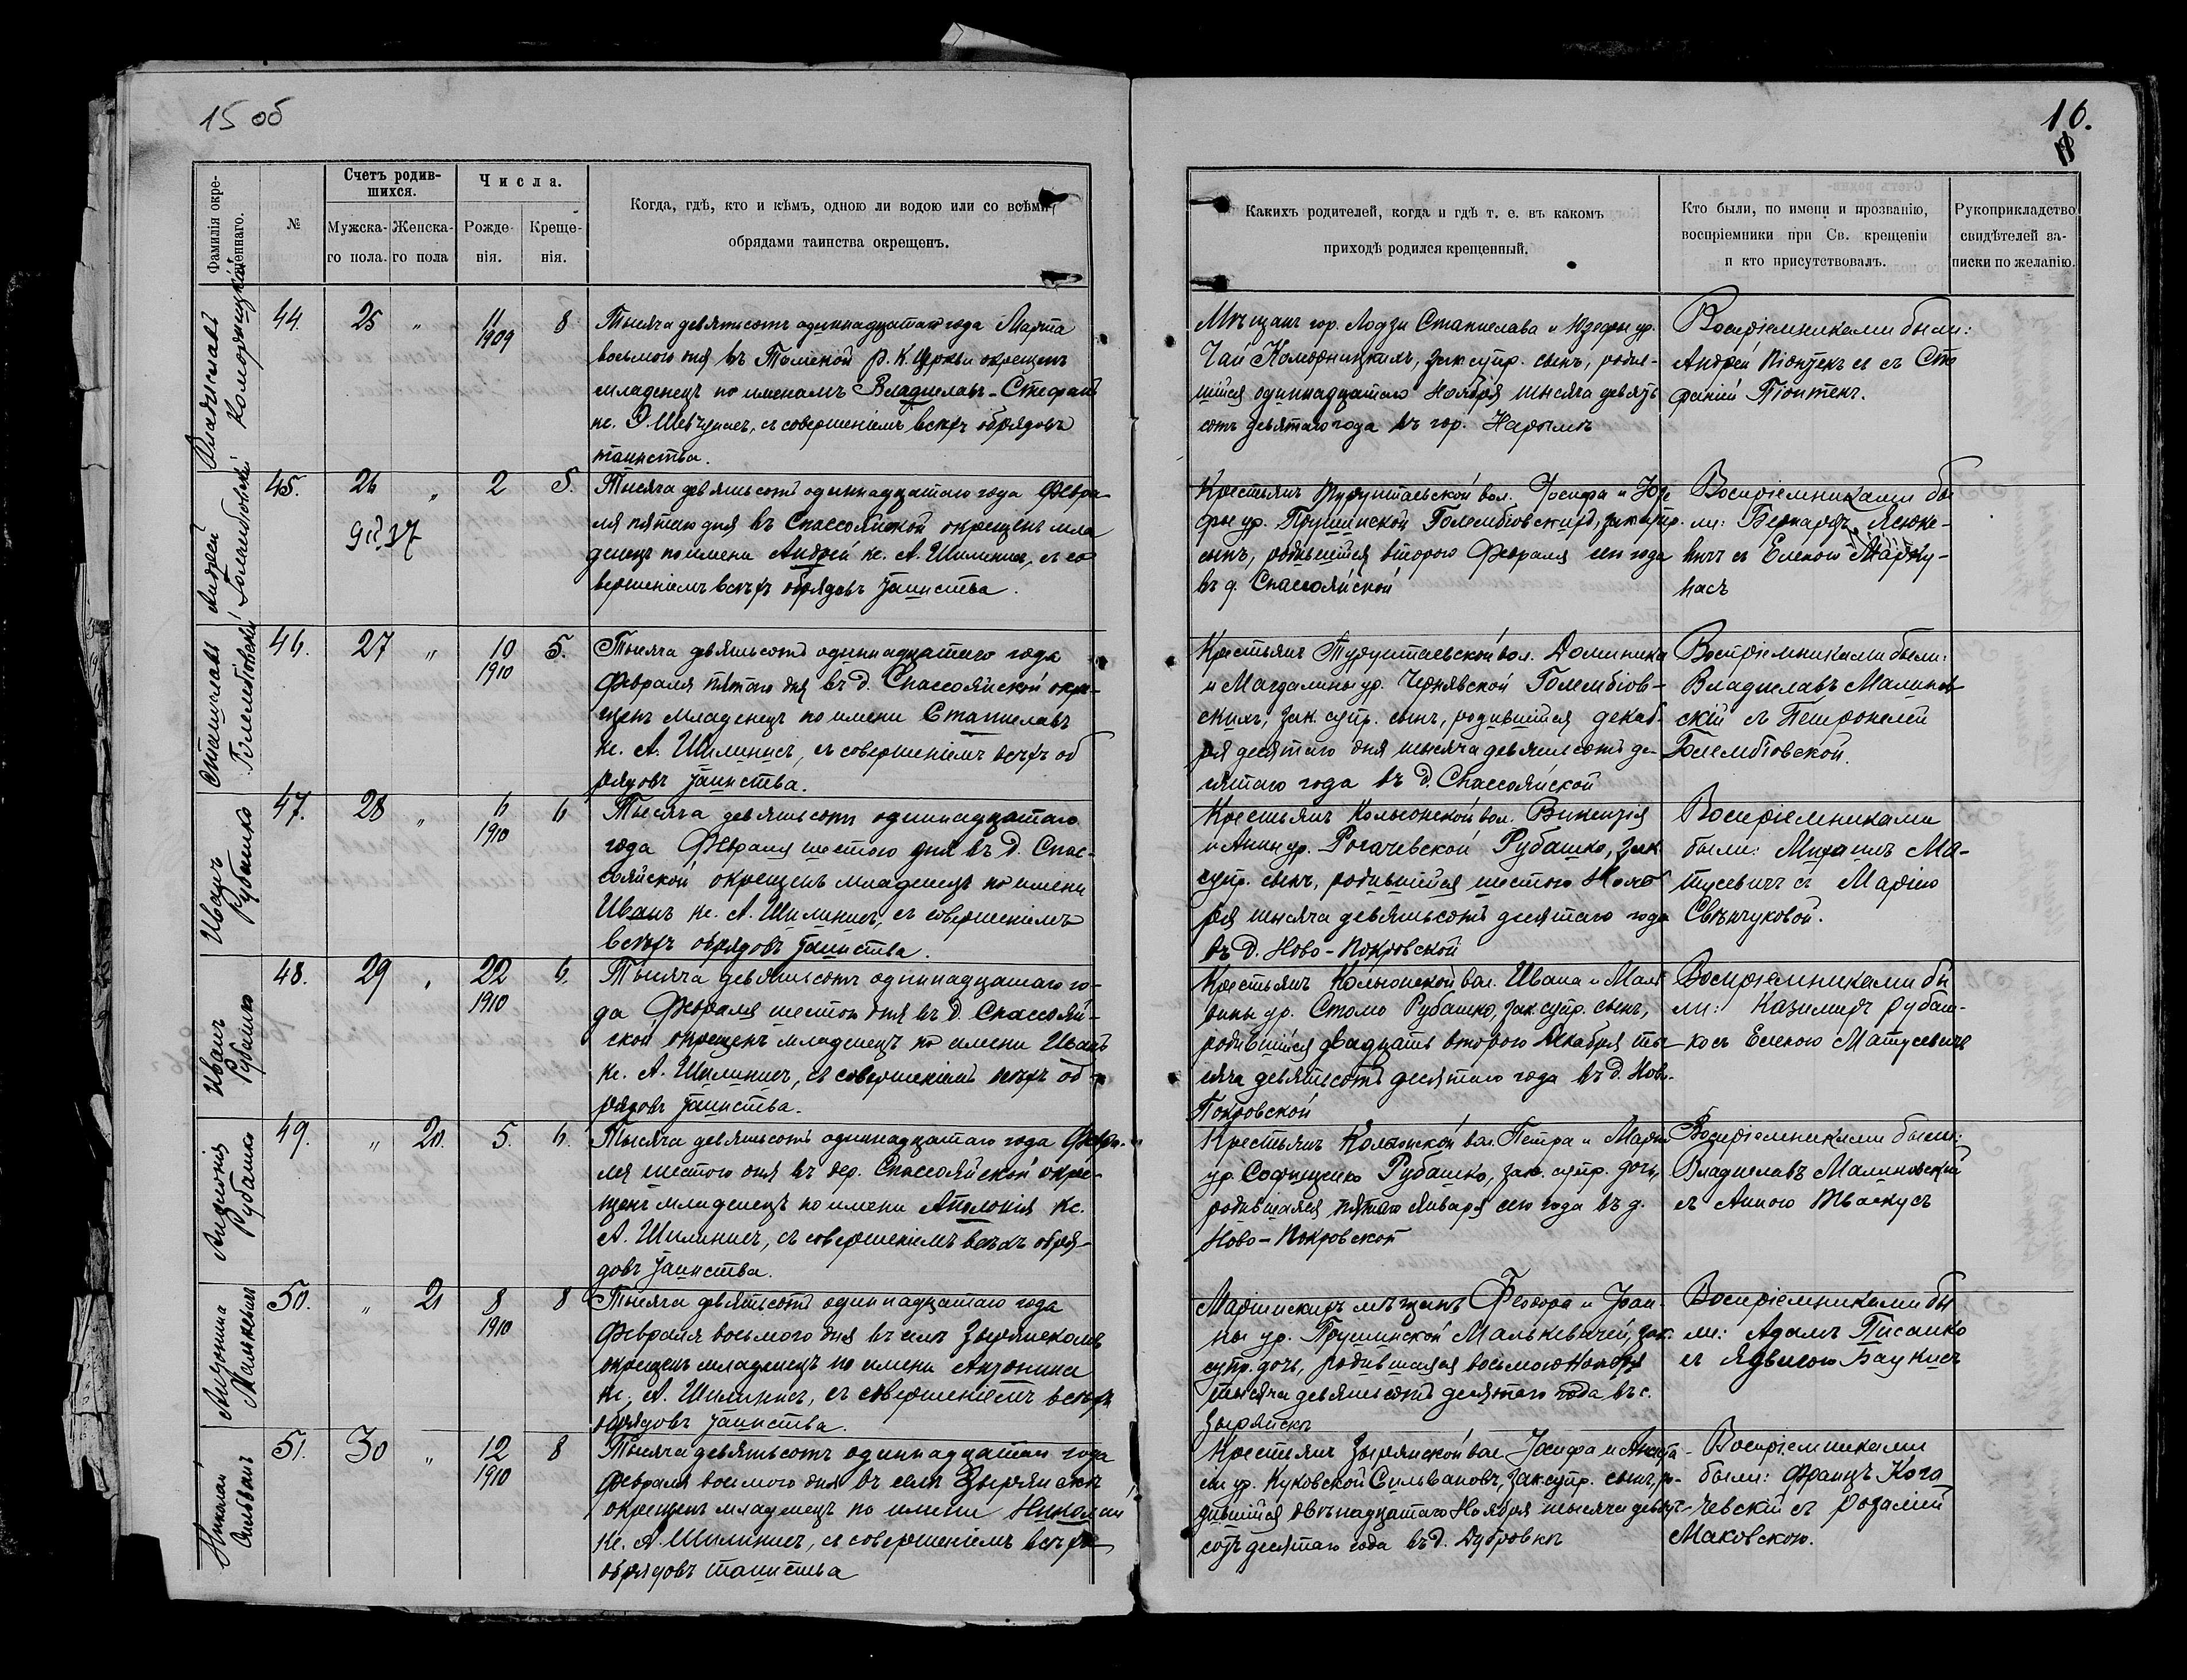 15 об
16.
Фамилія окре-
щеннаго.
№
Счетъ родив-
шихся.
Мужска-
го пола.
Женска-
го пола
Числа.
Рожде-
нія.
Креще-
нія.
Когда, гдѣ, кто и кѣмъ, одною ли водою или со всѣми
обрядами таинства окрещенъ.
Какихъ родителей, когда и гдѣ т. е. въ какомъ
приходѣ родился крещенный.
Кто были, по имени и прозванію,
воспріемники при Св. крещеніи
и кто присутствовалъ.
Рукоприкладство
свидѣтелей за-
писки по желанію.
Владиславъ
Коморницкій
44. 25 " 11 8
1909
Тысяча девятьсотъ одиннадцатаго года Марта
восьмого дня въ Томской р. к. церкви окрещенъ
младенецъ по именамъ Владиславъ-Стефанъ
кс. съ совершеніемъ всѣхъ обрядовъ
таинства.
Мѣщанъ гор. Лодзи Станислава и Юзефы ур.
Чай Коморницкихъ, зак. супр. сынъ, родив-
шійся одиннадцатаго Ноября тысяча девять
сотъ девятаго года въ гор. Нарымѣ
Воспріемниками были:
Андрей Піонтекъ съ Сте
фаніей Піонтекъ.
Андрей
45. 26 " 2 5.
Тысяча девятьсотъ одиннадцатаго года Февра-
ля пятаго дня въ Спассояйской окрещенъ мла
денецъ по имени Андрей кс. А. Шилинисъ, съ со
вершеніемъ всѣхъ обрядовъ таинства.
Крестьянъ Турунтаевской вол. Іосифа и Юзе
фы ур. Прушинской Голембіовскихъ, зак. супр.
сынъ, родившійся второго Февраля сего года
въ д. Спассояйской
Воспріемниками бы
ли: Бернардъ
съ Еленою
Станиславъ
Голембіовскій
46. 27 " 10 5.
1910
Тысяча девятьсотъ одиннадцатаго года
Февраля пятаго дня въ д. Спассояйской окре-
щенъ младенецъ по имени Станиславъ
кс. А. Шилинисъ, съ совершеніемъ всѣхъ об
рядовъ таинства.
Крестьянъ Турунтаевской вол. Доминика
и Магдалины ур. Чернявской Голембіов-
скихъ, зак. супр. сынъ, родившійся декаб-
ря десятаго дня тысяча девятьсотъ де-
сятаго года въ д. Спассояйской
Воспріемниками были:
Владиславъ Малинов-
скій съ Петронелей
Голембіовской.
Иванъ
Рубашко
47. 28 " 6 6
1910
Тысяча девятьсотъ одиннадцатаго
года Февраля шестого дня въ д. Спас-
сояйской окрещенъ младенецъ по имени
Иванъ кс. А. Шилинисъ, съ совершеніемъ
всѣхъ обрядовъ таинства.
Крестьянъ Колыонской вол. Викентія
и Анны ур. Рогачевской Рубашко, зак.
супр. сынъ, родившійся шестого Нояб
ря тысяча девятьсотъ десятаго года
въ д. Ново-Покровской
Воспріемниками
были: Михаилъ Ма-
тусевичъ съ Маріею
Свѣнчуковой.
Иванъ
Рубашко
48. 29 " 22 6.
1910
Тысяча девятьсотъ одиннадцатаго го-
да Февраля шестого дня въ д. Спассояй-
ской окрещенъ младенецъ по имени Иванъ
кс. А. Шилинисъ, съ совершеніемъ всѣхъ об-
рядовъ таинства.
Крестьянъ Колыонской вол. Ивана и Маль
вины ур. Стома Рубашко, зак. супр. сынъ,
родившійся двадцать второго Декабря ты-
сяча девятьсотъ десятаго года въ д. Ново-
Покровской
Воспріемниками бы
ли: Казимиръ Рубаш-
ко съ Еленою Матусевичъ
Аполонія
Рубашко
49. " 20. 5. 6.
Тысяча девятьсотъ одиннадцатаго года Февра-
ля шестого дня въ дер. Спассояйской окре-
щенъ младенецъ по имени Аполонія кс.
А. Шилинисъ, съ совершеніемъ всѣхъ обря-
довъ таинства.
Крестьянъ Колыонской вол. Петра и Маріи
ур. Рубашко, зак. супр. дочь,
родившаяся пятаго Января сего года въ д.
Ново-Покровской
Воспріемниками были:
Владиславъ Малиновскій
съ Анною
Антонина
Малькевичъ
50. " 21 8 8
1910
Тысяча девятьсотъ одиннадцатаго года
Февраля восьмого дня въ селѣ Зырянскомъ
окрещенъ младенецъ по имени Антонина
кс. А. Шилинисъ, съ совершеніемъ всѣхъ
обрядовъ таинства.
Маріинскихъ мѣщанъ Феодора и Іоан-
ны ур. Грушинской Малькевичей, зак.
супр. дочь, родившаяся восьмого Ноября
тысяча девятьсотъ десятаго года въ с.
Зырянскѣ
Воспріемниками бы
ли: Адамъ Писанко
съ Ядвигою Баукисъ
Николай
Сильванъ
51. 30 " 12 8
1910
Тысяча девятьсотъ одиннадцатаго года
Февраля восьмого дня въ селѣ Зырянскѣ
окрещенъ младенецъ по имени Николай
кс. А. Шилинисъ, съ совершеніемъ всѣхъ
обрядовъ таинства
Крестьянъ Зырянской вол. Іосифа и Анаста-
сіи ур. Куковской Сильвановъ, зак. супр. сынъ, ро-
дившійся двѣнадцатаго Ноября тысяча девять-
сотъ десятаго года въ д. Дубровкѣ
Воспріемниками
были: Францъ Кога
чевскій съ Розаліей
Маковскою.